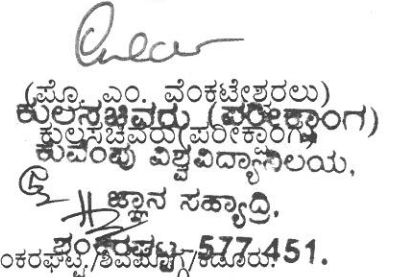 (ಪ್ರೊ. ಎಂ. ವೆಂಕಟೇಶ್ವರಲು)
ಕುಲಸಚಿವರು (ಪರೀಕ್ಷಾಂಗ)
ಕುಲಸಚಿವರು(ಪರೀಕ್ಷಾಂಗ)
ಕುವೆಂಪು ವಿಶ್ವವಿದ್ಯಾನಿಲಯ,
ಜ್ಞಾನ ಸಹ್ಯಾದ್ರಿ,
ಶಂಕರಘಟ್ಟ-577 451.
ಂಕರಘಟ್ಟ/ಶಿವಮೊಗ್ಗ/ಕಡೂರು.